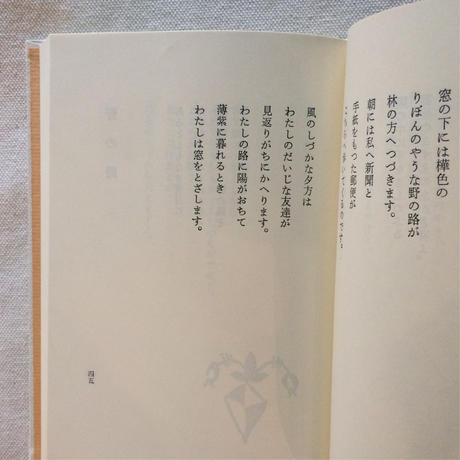 窓の下には樺色の
りぼんのやうな野の路が
林の方へつづきます。
朝には私へ新聞と
手紙をもつた郵便が
歩いてくるのです。
風のしづかな夕方は
わたしのだいじな友達が
見返りがちにかへります。
わたしの路に陽がおちて
薄紫に暮れるとき
わたしは窓をとざします。
四五